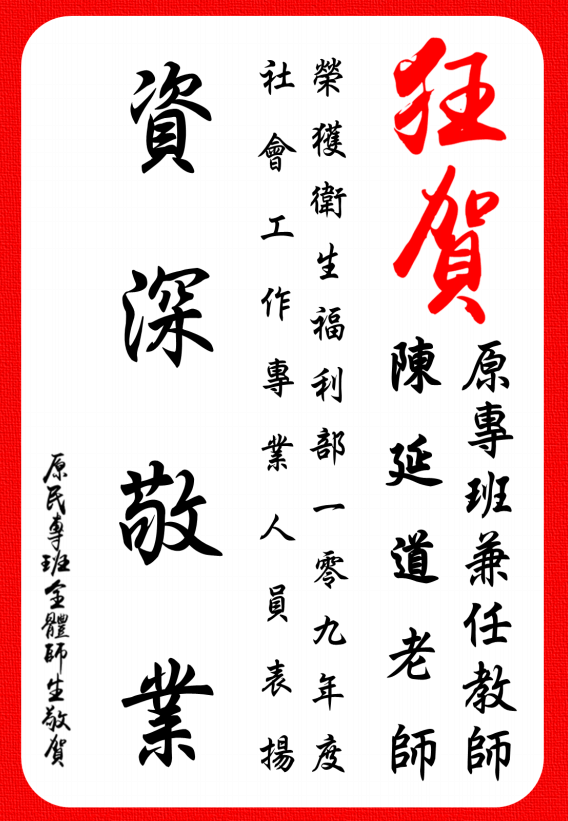 狂賀
原專班兼任教師
陳延道老師
榮獲衛生福利部一零九年度
社會工作專業人員表揚
資深敬業
原民專班全體師生敬賀